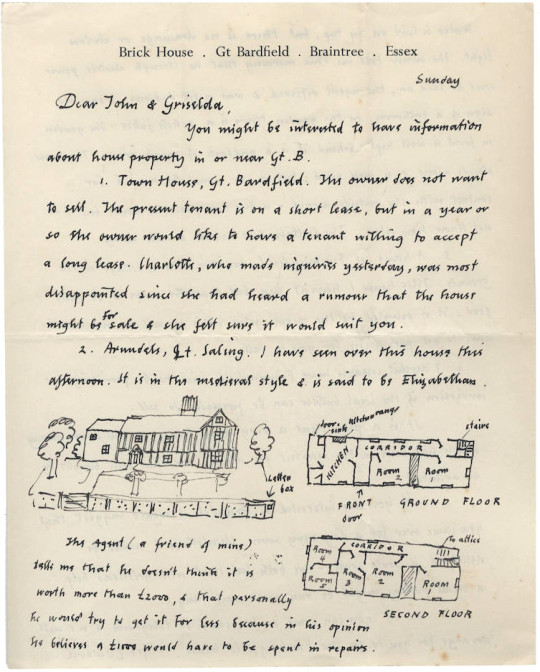 Brick House . Gt Bardfield . Braintree . Essex
Sunday
Dear John & Griselda,
You might be interested to have information
about house property in or near Gt. B.
1. Town House, Gt. Bardfield. The owner does not want
to sell. The present tenant is on a short lease, but in a year or
so the owner would like to have a tenant willing to accept
a long lease. Charlotte, who made inquiries yesterday, was most
disappointed since she had heard a rumour that the house
might be for sale & she felt sure it would suit you.
2. Arundels, Gt. Saling. I have seen over this house this
afternoon. It is in the medieval style & is said to be Elizabethan.
Letter
box
door
sink
kitchen range
stairs
CORRIDOR
KITCHEN
Room
2
Room
1
FRONT
door
GROUND FLOOR
to attics
CORRIDOR
Room
4
Room
5
Room
3
Room
2
ROOM
1
SECOND FLOOR
The Agent (a friend of mine)
tells me that he doesn't think it is
worth more than £2000, & that personally
he would try to get it for less because in his opinion
he believes a £1000 would have to be spent in repairs.